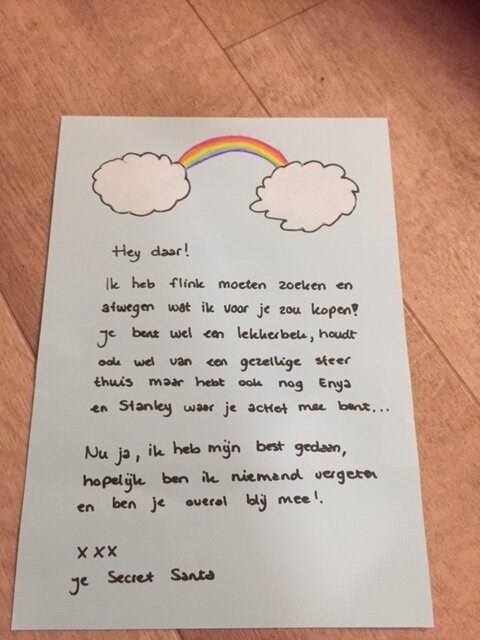 Hey daar!
Ik heb flink moeten zoeken en
afwegen wat ik voor je zou kopen!
Je bent wel een lekkerbek, houdt
ook wel van een gezellige sfeer
thuis maar hebt ook nog Enya
en Stanley waar je actief mee bent...
Nu ja, ik heb mijn best gedaan,
hopelijk ben ik niemand vergeten
en ben je overal blij mee!
xxx
je Secret Santa